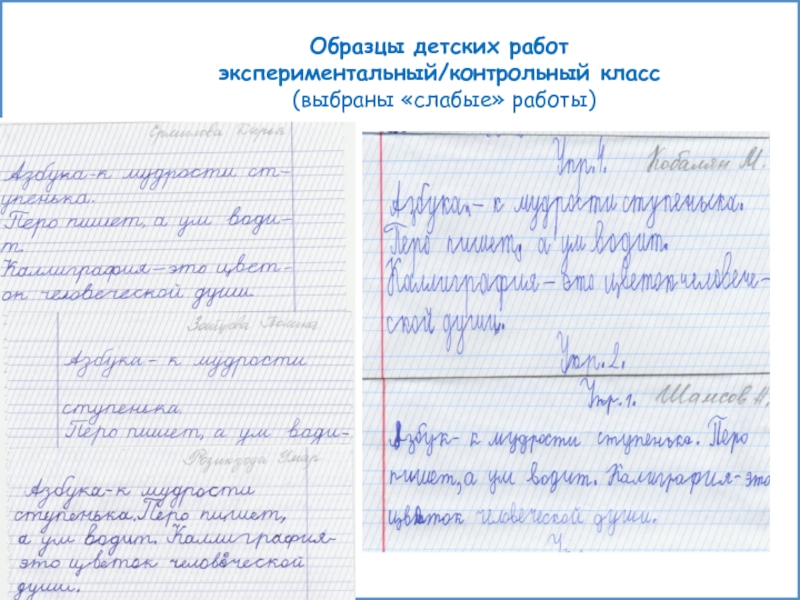 Образцы детских работ
экспериментальный/контрольный класс
(выбраны «слабые» работы)
Ермилова Дарья
Азбука-к мудрости ст-
упенька.
Перо пишет, а ум води-
т.
Каллиграфия-это цвет-
ок человеческой души.
Зайцева Полина
Азбука - к мудрости
ступенька.
Перо пишет, а ум води-
Умар
Азбука-к мудрости
ступенька. Перо пишет,
а ум водит. Каллиграфия-
это цветок человеческой
души.
Упр.1. Кобалян М.
Азбука, - к мудрости ступенька.
Перо пишет, а ум водит.
Каллиграфия - это цветок человече-
ской души.
Упр.2.
Упр.1. Шамсов А.
Азбук- к мудрости ступенька. Перо
пишет, а ум водит. Калиграфия-это
цветок человеческой души.